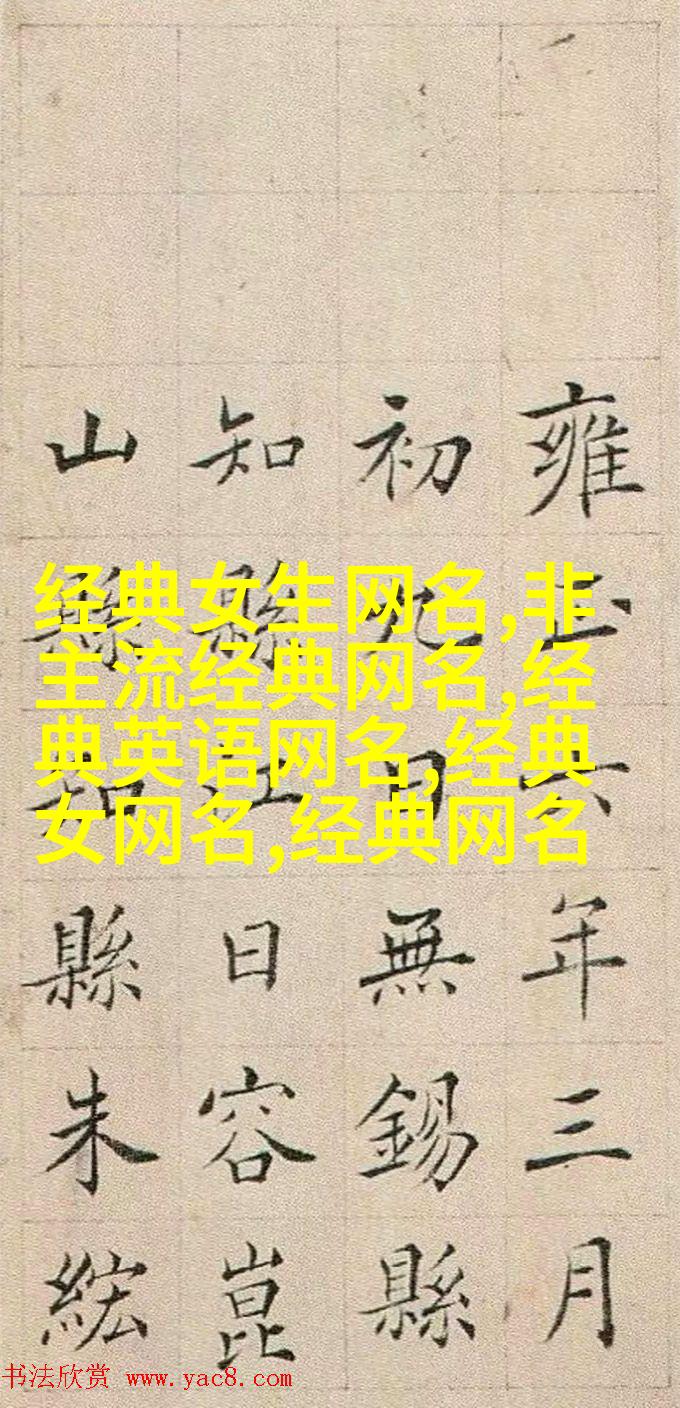 雍正六年三月
初九日無錫縣
知縣江日容崑
山縣知縣朱紘
经典女生网名,非
主流经典网名,经
典英语网名,经典
女网名,经典网名
书法欣赏 www.yac8.com